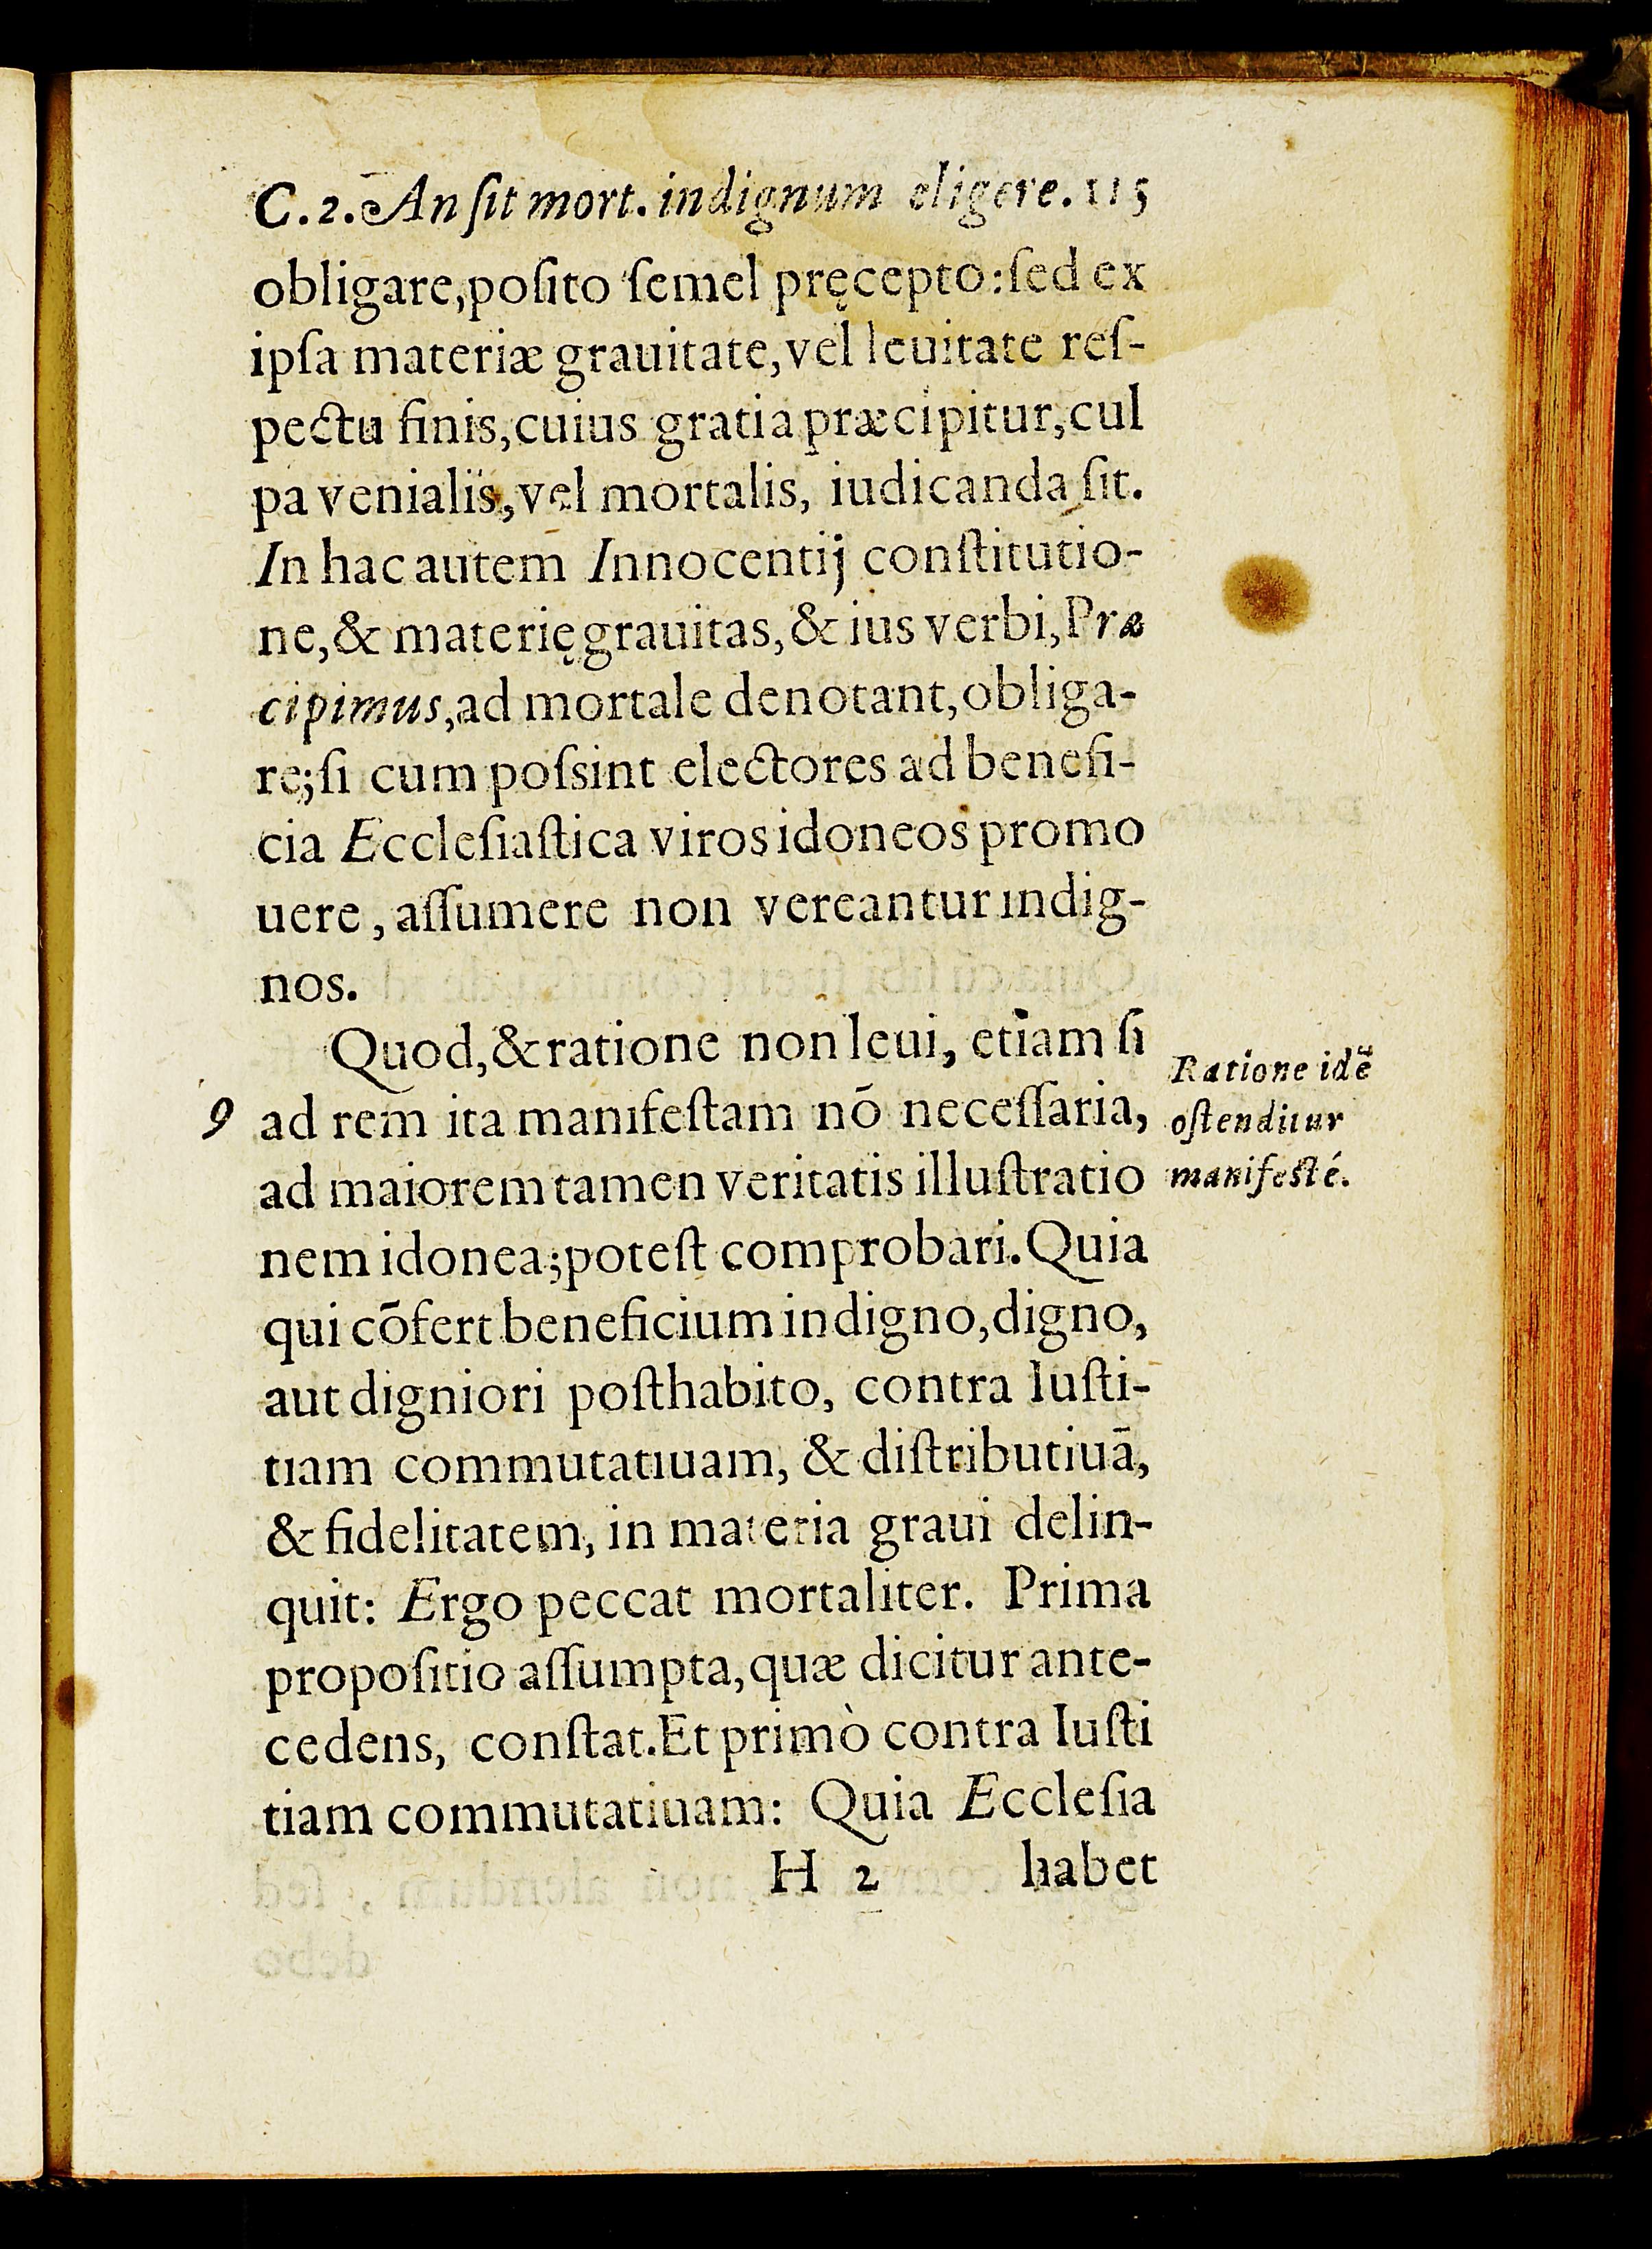 C.2. An ſit mort. indignum eligere. 115
obligare, poſito ſemel pręcepto: ſed ex
ipſa materiæ grauitate, vel leuitate reſ-
pectu finis, cuius gratia præcipitur, cul
pa venialis, vel mortalis, iudicanda ſit.
In hac autem Innocentij conſtitutio-
ne, & materię grauitas, & ius verbi, Præ
cipimus, ad mortale denotant, obliga-
re; ſi cum poſsint electores ad benefi-
cia Eccleſiaſtica viros idoneos promo
uere, aſſumere non vereantur indig-
nos.
Quod, & ratione non leui, etiam ſi
9 ad rem ita manifeſtam nō neceſſaria,
ad maiorem tamen veritatis illuſtratio
nem idonea; poteſt comprobari. Quia
qui cōfert beneficium indigno, digno,
aut digniori poſthabito, contra Iuſti-
tiam commutatiuam, & diſtributiuā,
& fidelitatem, in materia graui delin-
quit: Ergo peccat mortaliter. Prima
propoſitio aſſumpta, quæ dicitur ante-
cedens, conſtat. Et primò contra Iuſti
tiam commutatiuam: Quia Eccleſia
H 2 habet
Ratione idē
oſtenditur
manifeſté.